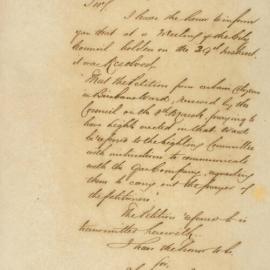 Sir,
I have the honor to inform
you that at a Meeting of the City
Council holden on the 29th instant
it was Resolved
"That the Petition from certain Citizens
in Brisbane Ward, received by the
Council on the 8th March, praying to
have lights erected in that Ward
be referred to the Lighting Committee
with instructions to communicate
with the Gas Company, requesting
them to carry out the prayer of
the petitioners"
The Petition referred to is
transmitted herewith.
I have the honor to be,
Sir,